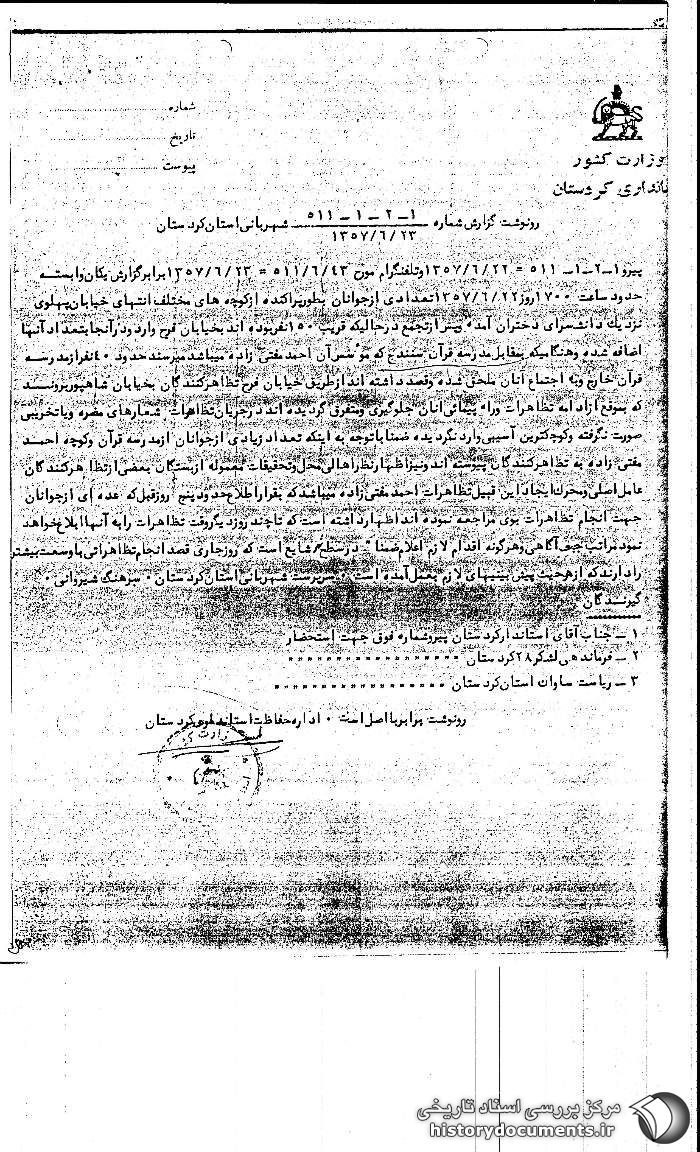 شماره
تاریخ
پیوست
وزارت کشور
کردستان
رونوشت گزارش شماره ۱ــ۲ــ۱ــ۵۱۱ شهربانی استان کردستان
۱۳۵۷/۶/۲۳
پیرو ۱ــ۲ــ۱ــ۵۱۱ = ۱۳۵۷/۶/۲۲ وتلفنگرام مورخ ۵۱۱/۶/۴۳ = ۱۳۵۷/۶/۲۳ برابر گزارش یکان وابسته
حدود ساعت ۱۷۰۰ روز ۱۳۵۷/۶/۲۲ تعدادی ازجوانان بطور پراکنده ازکوچه های مختلف انتهای خیابان پهلوی
نزدیک دانشسرای دختران آمده وپس ازتجمع درحالیکه قریب ۱۵۰ نفربوده اند بخیابان فرح وارد ودرآنجا بتعداد آنها
اضافه شده وهنگامیکه بمقابل مدرسه قرآن سنندج که موسس آن احمد مفتی زاده میباشد میرسند حدود ۴۰ نفر ازمدرسه
قرآن خارج وبه اجتماع آنان ملحق شده وقصد داشته اند ازطریق خیابان فرح تظاهرکنندگان بخیابان شاهپور بروند
که بموقع ازادامه تظاهرات وراه پیمائی آنان جلوگیری ومتفرق گردیده اند درجریان تظاهرات شعارهای مضره ویاتخریبی
صورت نگرفته وکوچکترین آسیبی وارد نگردیده ضمنا باتوجه به اینکه تعداد زیادی ازجوانان ازمدرسه قرآن وکوچه احمد
مفتی زاده به تظاهرکنندگان پیوسته اند ونیز اظهارنظر اهالی محل وتحقیقات معموله ازبستگان بعضی ازتظاهرکنندگان
عامل اصلی ومحرک ایجاد این قبیل تظاهرات احمد مفتی زاده میباشد که بقرار اطلاع حدود پنج روز قبل که عده ای ازجوانان
جهت انجام تظاهرات بوی مراجعه نموده اند اظهار داشته است که تاچند روز دیگر وقت تظاهرات را به آنها ابلاغ خواهد
نمود مراتب جهت آگاهی وهرگونه اقدام لازم اعلام ضمنا" درسطح شهر شایع است که روزجاری قصد انجام تظاهراتی باوسعت بیشتر
را دارند که ازهرحیث پیش بینیهای لازم بعمل آمده است ۰ سرپرست شهربانی استان کردستان ۰ سرهنگ شیروانی ۰
گیرندگان :
۱ ــ جناب آقای استاندار کردستان پیرو شماره فوق جهت استحضار
۲ ــ فرماندهی لشکر ۲۸ کردستان " " " " " " " " " " " " " " " "
۳ ــ ریاست ساواک استان کردستان " " " " " " " " " " " " " " " "
رونوشت برابر بااصل است ۰ اداره حفاظت استانداری کردستان
مرکز بررسی اسناد تاریخی
historydocuments.ir